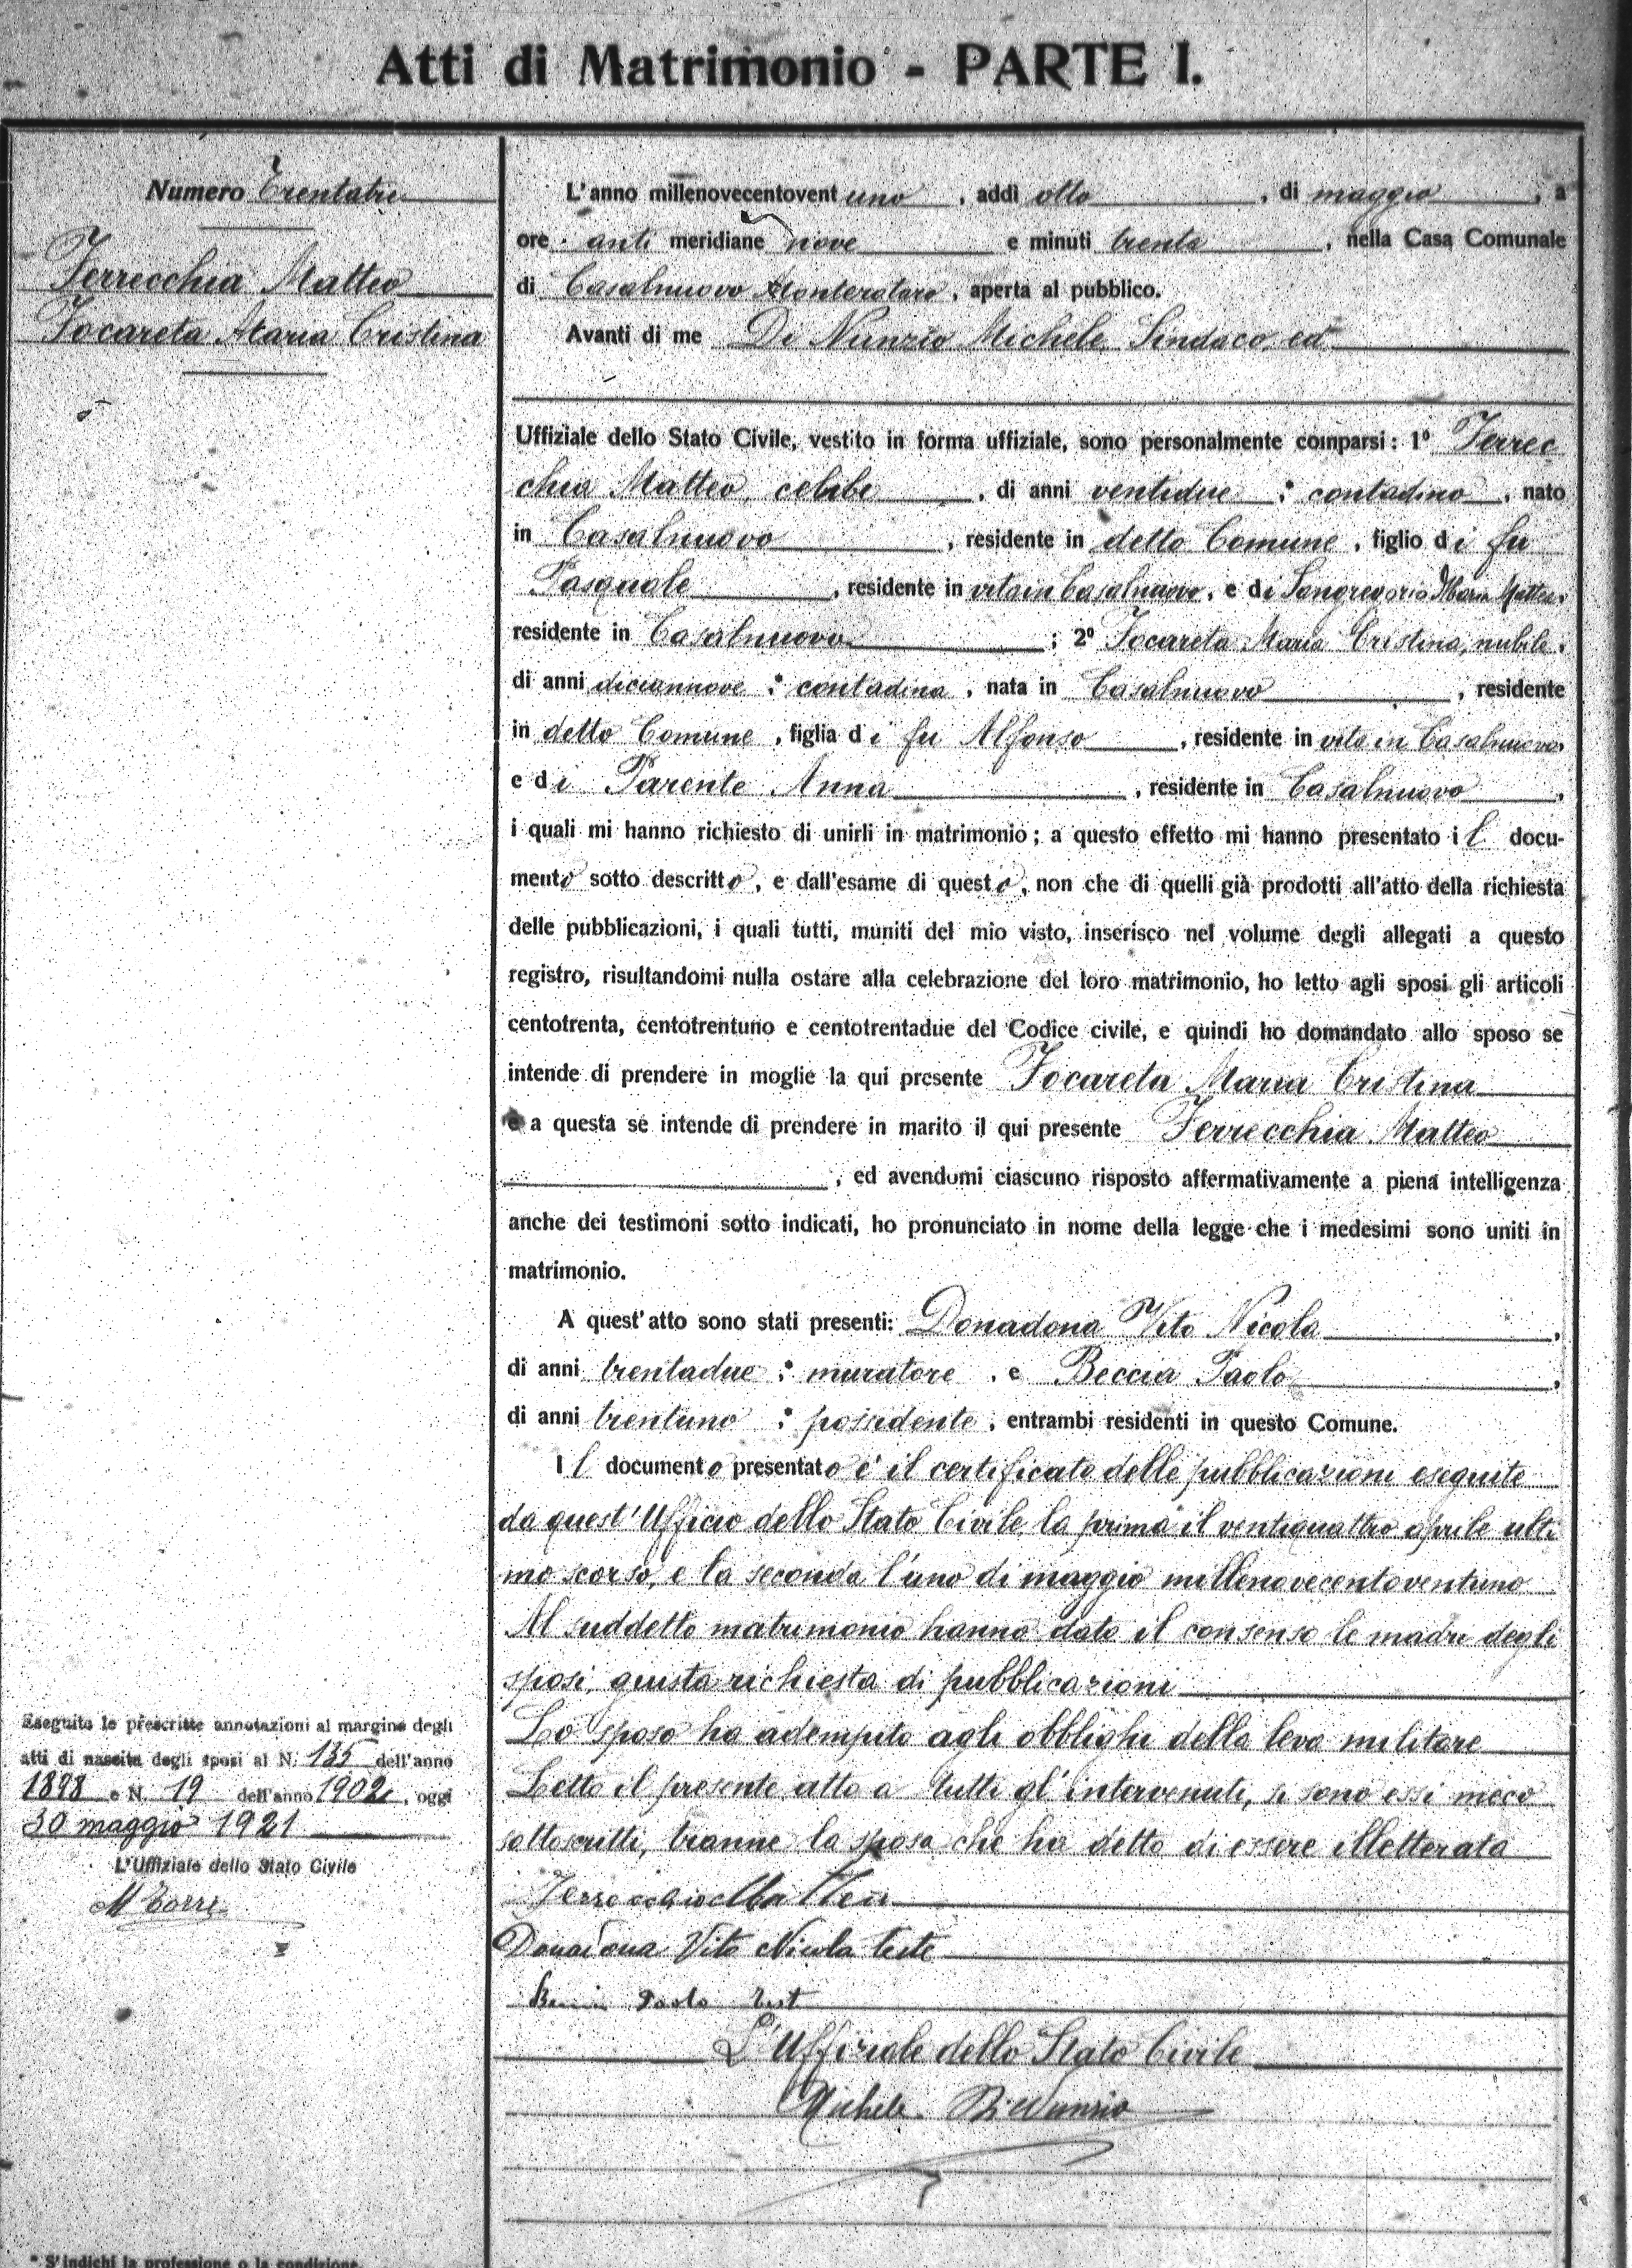 Atti di Matrimonio - PARTE I.
Numero Trentatre
Ferrecchia Matteo
Focareta Maria Cristina
L'anno millenovecentovent uno, addì otto, di maggio, a
ore anti meridiane nove e minuti trenta, nella Casa Comunale
di Casalnuovo Monterotaro, aperta al pubblico.
Avanti di me Di Nunzio Michele Sindaco, ed
Uffiziale dello Stato Civile, vestito in forma uffiziale, sono personalmente comparsi: 1º Ferrec
chia Matteo, celibe, di anni ventidue : contadino, nato
in Casalnuovo, residente in detto Comune, figlio di fu
Pasquale, residente in vita in Casalnuovo, e di Sangregorio Maria Mattea,
residente in Casalnuovo; 2º Focareta Maria Cristina, nubile,
di anni diciannove : contadina, nata in Casalnuovo, residente
in detto Comune, figlia di fu Alfonso, residente in vita in Casalnuovo,
e di Parente Anna, residente in Casalnuovo,
i quali mi hanno richiesto di unirli in matrimonio; a questo effetto mi hanno presentato il docu-
mento sotto descritto, e dall'esame di questo, non che di quelli già prodotti all'atto della richiesta
delle pubblicazioni, i quali tutti, muniti del mio visto, inserisco nel volume degli allegati a questo
registro, risultandomi nulla ostare alla celebrazione del loro matrimonio, ho letto agli sposi gli articoli
centotrenta, centotrentuno e centotrentadue del Codice civile, e quindi ho domandato allo sposo se
intende di prendere in moglie la qui presente Focareta Maria Cristina
e a questa se intende di prendere in marito il qui presente Ferrecchia Matteo
, ed avendomi ciascuno risposto affermativamente a piena intelligenza
anche dei testimoni sotto indicati, ho pronunciato in nome della legge che i medesimi sono uniti in
matrimonio.
A quest'atto sono stati presenti: Donadona Vito Nicola,
di anni trentadue : muratore, e Beccia Paolo,
di anni trentuno : possidente, entrambi residenti in questo Comune.
Il documento presentato è il certificato delle pubblicazioni eseguite
da quest'Ufficio dello Stato Civile, la prima il ventiquattro aprile ulti
mo scorso, e la seconda l'uno di maggio millenovecentoventuno
Al suddetto matrimonio hanno dato il consenso le madri degli
sposi, giusta richiesta di pubblicazioni
Lo sposo ha adempito agli obblighi della leva militare
Letto il presente atto a tutti gl'intervenuti, si sono essi meco
sottoscritti, tranne la sposa che ha detto di essere illetterata
Ferrecchia Matteo
Donadona Vito Nicola teste
Paolo test
L'Uffiziale dello Stato Civile
Michele Di Nunzio
Eseguite le prescritte annotazioni al margine degli
atti di nascita degli sposi al N. 135 dell'anno
1898 e N. 19 dell'anno 1902, oggi
30 maggio 1921
L'Uffiziale dello Stato Civile
M Torri
* S'indichi la professione o la condizione.